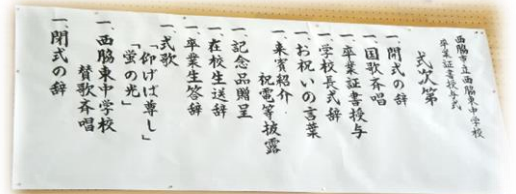 西脇市立西脇東中学校
卒業証書授与式
式次第
一、開式の辞
一、国歌斉唱
一、卒業証書授与
一、学校長式辞
一、お祝いの言葉
一、来賓紹介
祝電等披露
一、記念品贈呈
一、在校生送辞
一、卒業生答辞
一、式歌
「仰げば尊し」
「蛍の光」
一、西脇東中学校
賛歌斉唱
一、閉式の辞